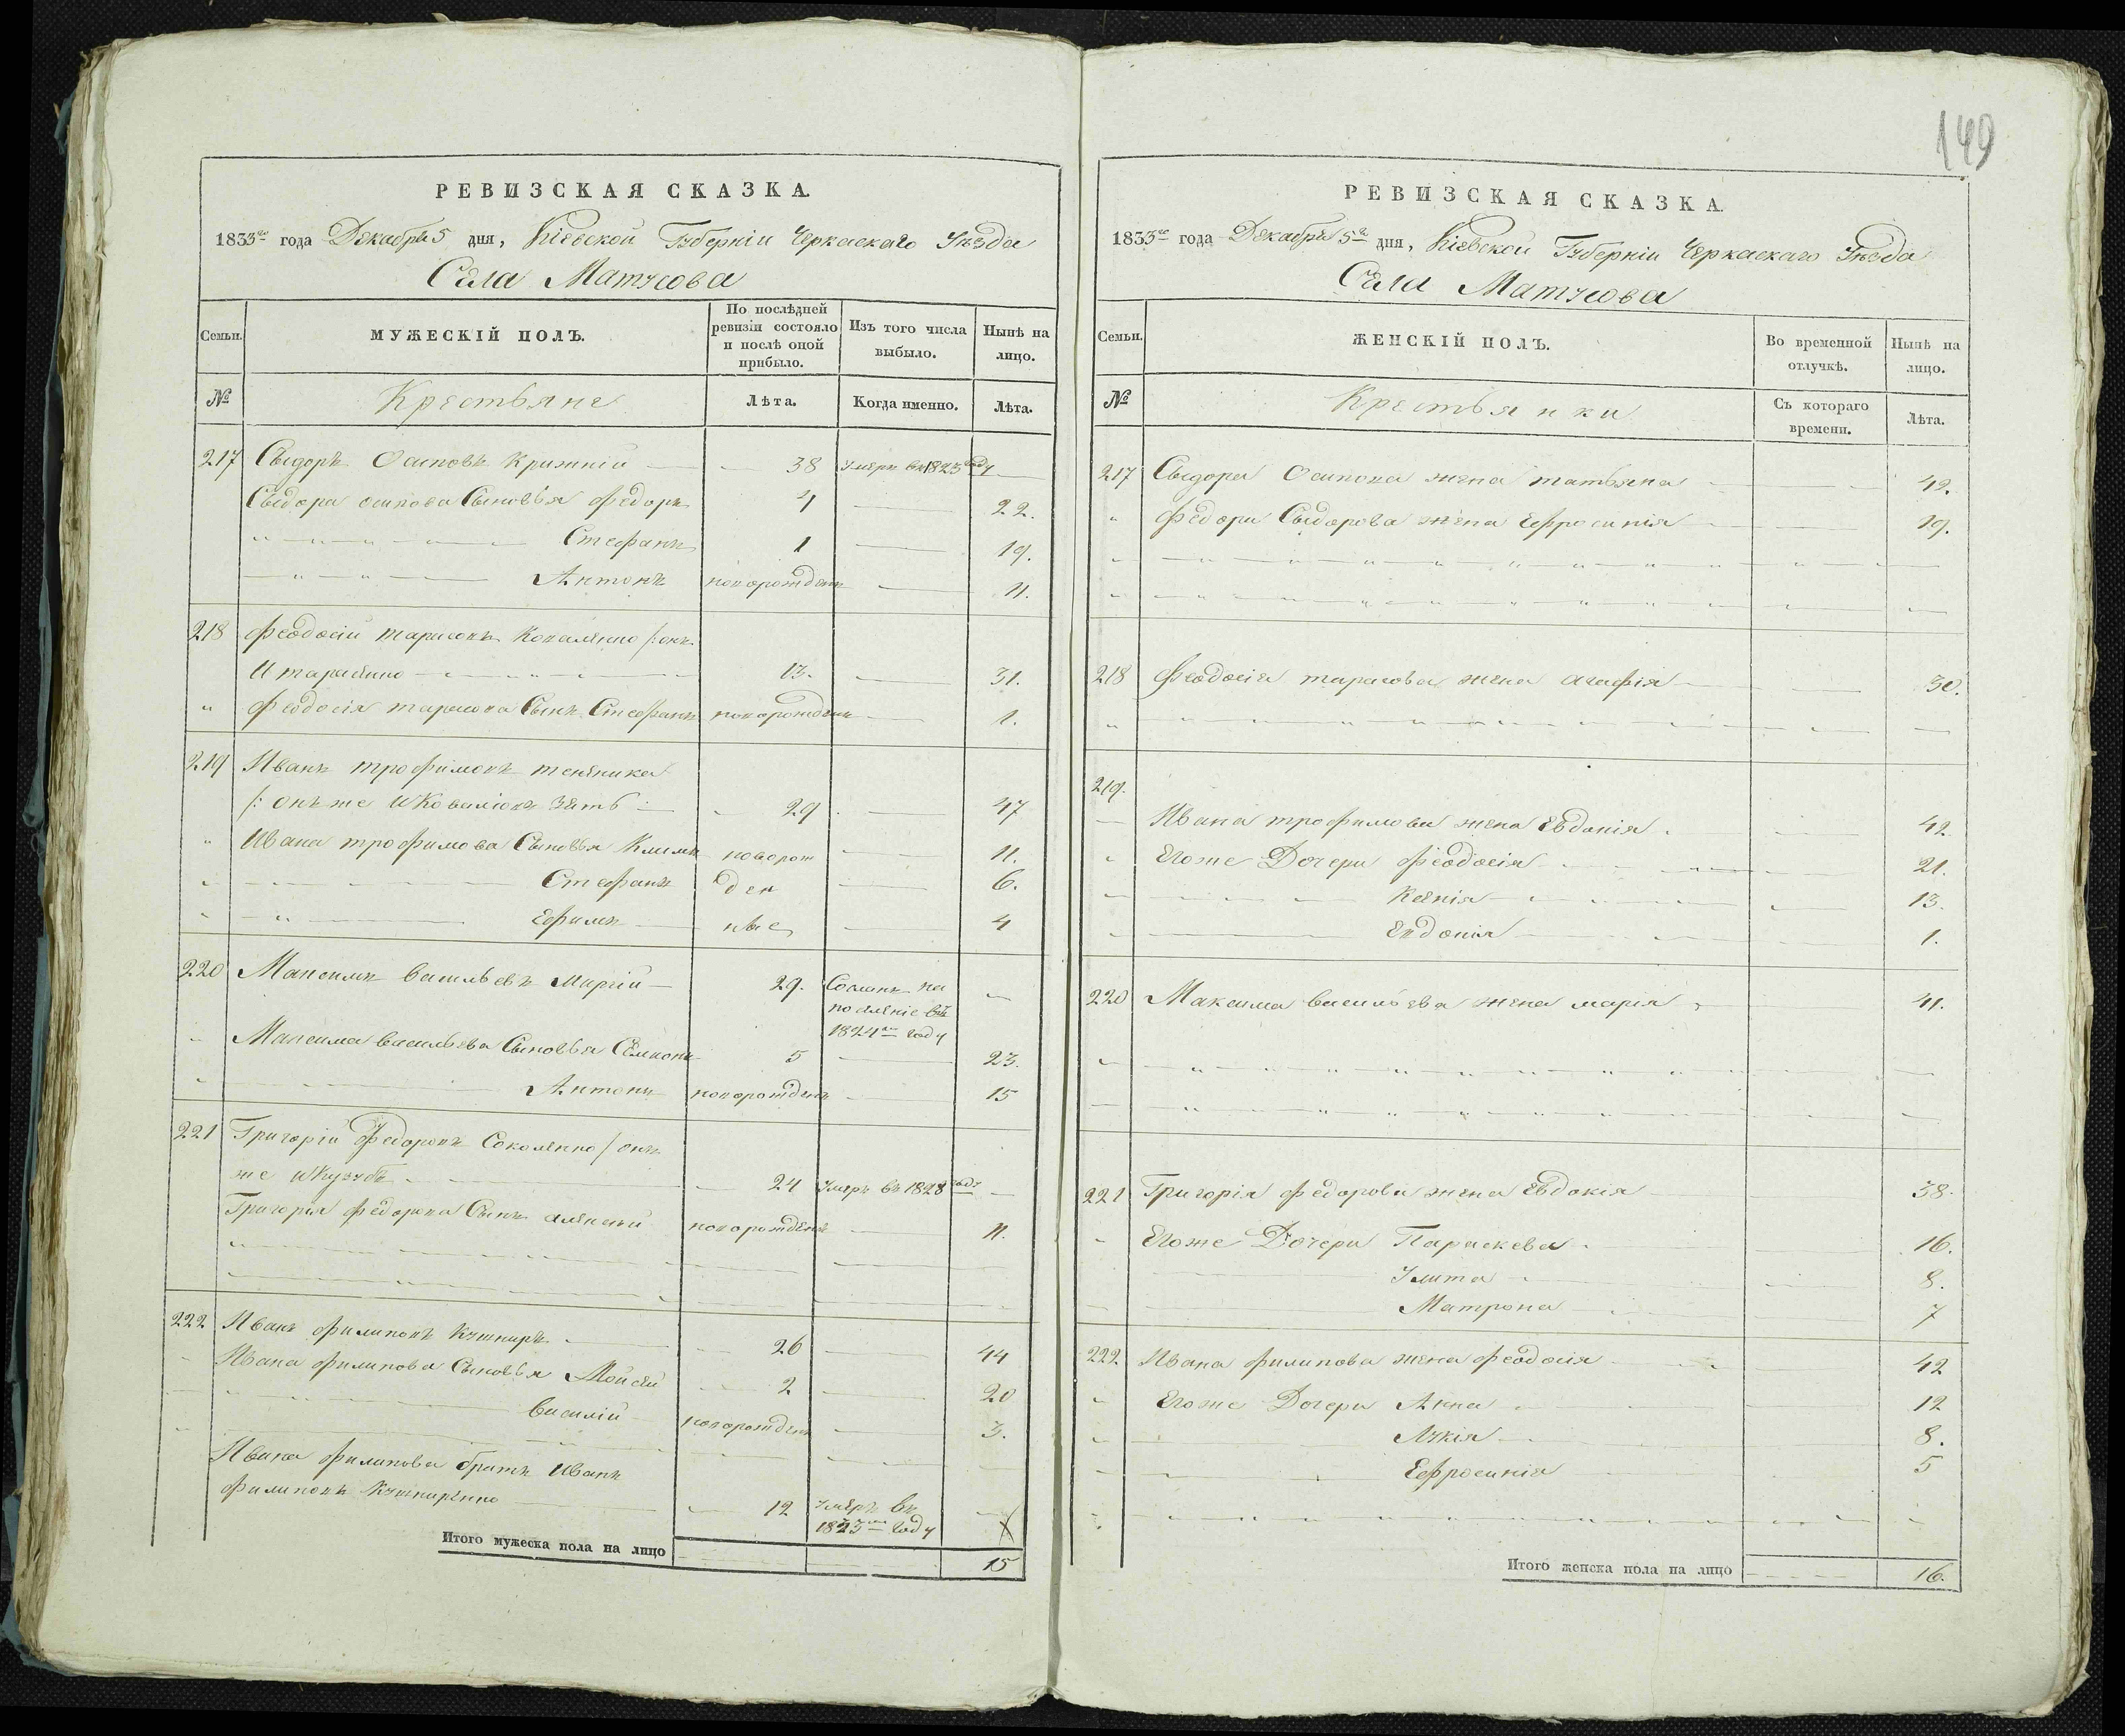 РЕВИЗСКАЯ СКАЗКА
1833го года Декабря 5 дня, Кіевской Губерніи Черкаскаго Уѣзда
Села Матусова
Семьи.
МУЖЕСКІЙ ПОЛЪ.
По послѣдней ревизіи состояло и послѣ оной прибыло.
Изъ того числа выбыло.
Нынѣ на лицо.
№
Крестьяне
Лѣта.
Когда именно.
Лѣта.
217 Сыдоръ Осиповъ 38 умеръ въ 1823 году
Сыдора осипова Сыновья Федоръ 4 22.
Стефанъ 1 19.
Антонъ новорожденъ 11.
218 Феодосій тарасовъ Коваленко /: онъ
И тарасенко 13. 31.
" Феодосія тарасова Сынъ Стефанъ новорожденъ 1.
219 Иванъ трофимовъ
/: онъ же И зять 29 47
" Ивана трофимова Сыновья Климъ новорож 11.
Стефанъ ден 6.
Ефимъ ные 4
220 Максимъ васильевъ 29. Сосланъ на
поселеніе въ
1824м году
Максима васильева Сыновья Семионъ 5 23.
Антонъ новорожденъ 15
221 Григорій Федоровъ Соколенко / онъ
же 24 умеръ въ 1828 году
Григорія федорова Сынъ алексей новорожденъ 11.
222 Иванъ филиповъ Кушниръ 26 44
Ивана филипова Сыновья Мойсей 2 20
Василій новорожденъ 3.
Ивана филипова братъ Иванъ
филиповъ Кушниренко 12 умеръ въ
1823м году
Итого мужеска пола на лицо 15
149
РЕВИЗСКАЯ СКАЗКА
1833го года Декабря 5го дня, Кіевской Губерніи Черкаскаго Уѣзда
Села Матусова
Семьи.
ЖЕНСКІЙ ПОЛЪ.
Во временной отлучкѣ.
Нынѣ на лицо.
№
Крестьянки
Съ котораго времени.
Лѣта.
217 Сыдора Осипова жена татьяна 42.
" Федора Сыдорова жена Ефросинія 19.
218 Феодосія тарасова жена агафія 30.
219.
Ивана трофимова жена Евдокія 42.
Егоже Дочери Феодосія 21.
Ксенія 13.
Евдокія 1.
220 Максима васильева жена марія 41.
221 Григорія федорова жена Евдокія 38.
Егоже Дочери Параскева 16.
Улита 8.
Матрона 7
222 Ивана филипова жена феодосія 42
Егоже Дочери Анна 12
Лукія 8.
Ефросинія 5
Итого женска пола на лицо 16.